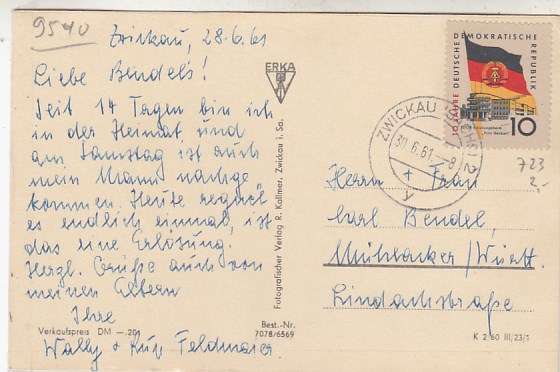 9540
Zwickau, 28.6.61
Liebe Bendel's!
Seit 14 Tagen bin ich
in der Heimat und
am Samstag ist auch
mein Mann nachge
kommen. Heute regnet
es endlich einmal, ist
das eine Erlösung.
Herzl. Grüße auch von
meinen Eltern
Ihre
Wally + Feldmaier
Verkaufspreis DM —.20
Best.-Nr.
7078/6569
ERKA
Fotografischer Verlag R. Kallmer, Zwickau i. Sa.
10 JAHRE DEUTSCHE DEMOKRATISCHE REPUBLIK
10
ZWICKAU (SACHS) 2
30.6.61-8
y
723
2,-
Herrn + Frau
Carl Bendel,
Mühlacker/Württ.
Lindachstraße
K 2/60 III/23/1